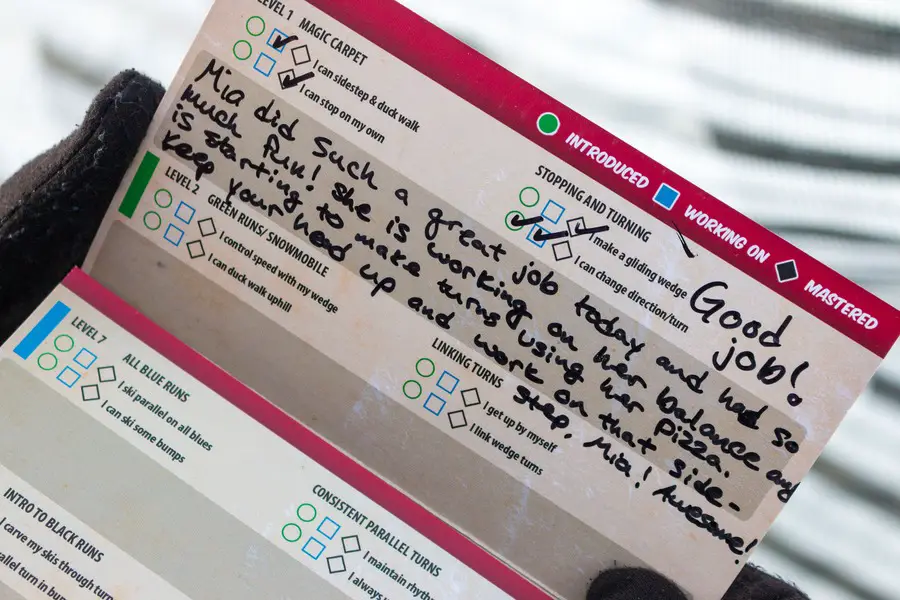 LEVEL 1 MAGIC CARPET
I can sidestep & duck walk
I can stop on my own
INTRODUCED WORKING ON MASTERED
STOPPING AND TURNING
I make a gliding wedge
I can change direction/turn
Good
job!
Mia did such a great job today and had so
much fun! She is working on her balance and
is starting to make turns using her pizza.
Keep your head up and work on that side-
step, Mia! Awesome!
LEVEL 2
GREEN RUNS/ SNOWMOBILE
I control speed with my wedge
I can duck walk uphill
LINKING TURNS
I get up by myself
I link wedge turns
LEVEL 7 ALL BLUE RUNS
I ski parallel on all blues
I can ski some bumps
CONSISTENT PARALLEL TURNS
I maintain
I always
INTRO TO BLACK RUNS
I carve my skis through
turn in